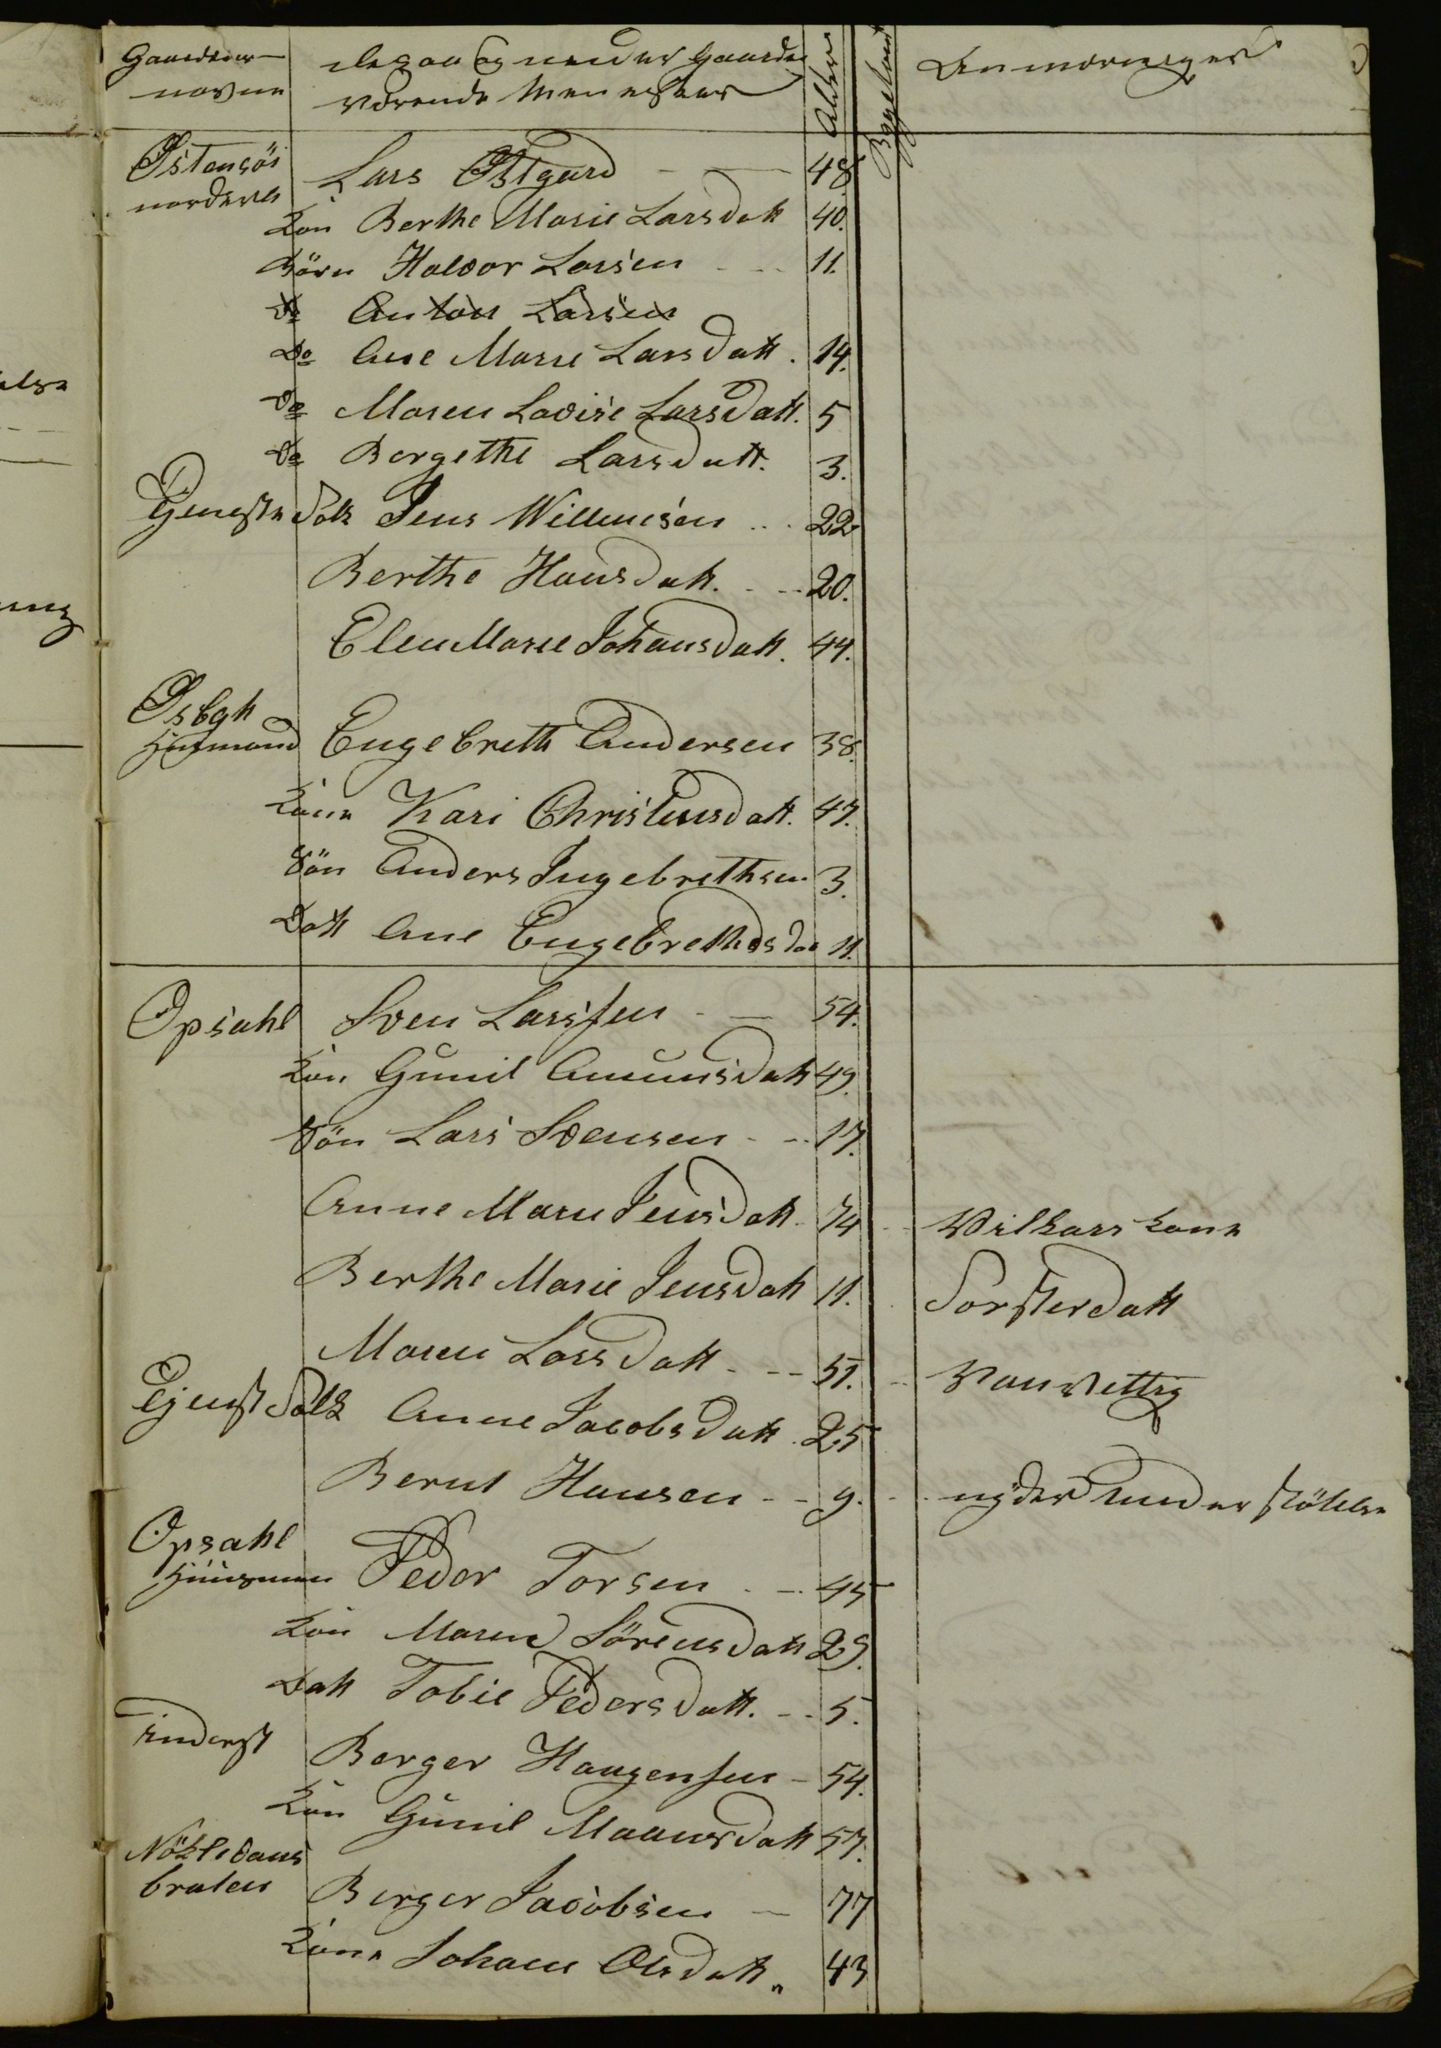 Gaardenes
navne
de paa og under Gaarden
værende Mennesker
Alder
Bygeland
Anmærninger
Östensöi
nordere
Lars Östgard 48.
Kon Berthe Marie Larsdatt 40.
Börn Haldor Larsen 11.
Do Anton Larsen
Do Ane Marie Larsdatt. 14.
Do Maren Lovise Larsdatt. 5
Do Bergethe Larsdatt. 3.
Tjeneste Folk Jens Willumsen 22
Berthe Hansdatt. 20.
Elen Marie Johansdatt. 44.
Husmand Engebreth Andersen 38.
Kone Kari Christensdatt. 47.
Sön Anders Ingebrethsen 3.
Datt Ane Engebrethsdat 11.
Opsahl Sven Larssen 54.
Kon Gunil Amunsdatt 49.
Sön Lars Svensen 17.
Anne Marie Jensdatt 74 Vilkars kone
Berthe Marie Jensdatt 11. Forsterdatt
Maren Larsdatt 51. Vanvettig
Tjenst Folk Anne Jacobsdatt. 25
Bernt Hansen 9. nyder understöttelse
Opsahl
Huusman Peder Torsen 45
Kon Maren Sörensdatt 29.
Datt Tobie Pedersdatt. 5.
Inderst Berger Haagensen 54.
Kon Gunil Maansdatt 57.
braten Berger Jacobsen 77
Kone Johane Olsdatt. 43